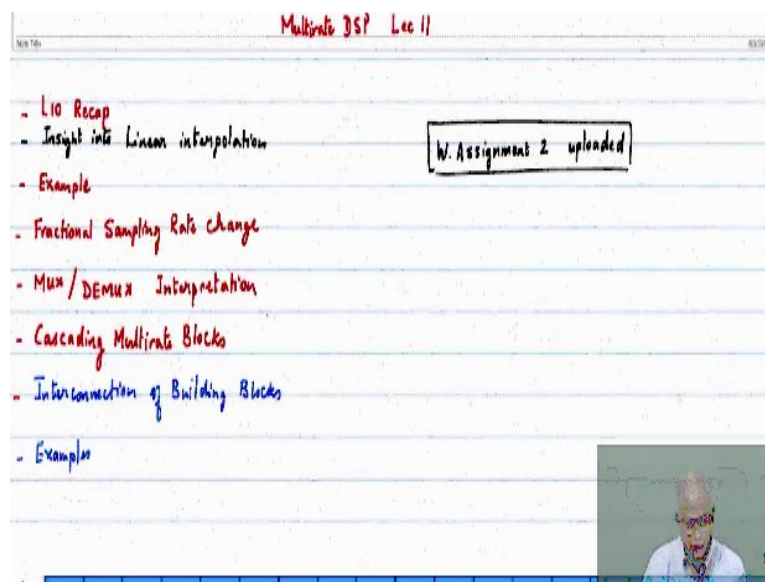 Multirate DSP Lec 11
Note Title
- L10 Recap
- Insight into Linear interpolation
W. Assignment 2 uploaded
- Example
- Fractional Sampling Rate Change
- Mux / DEMUX Interpretation
- Cascading Multirate Blocks
- Interconnection of Building Blocks
- Examples